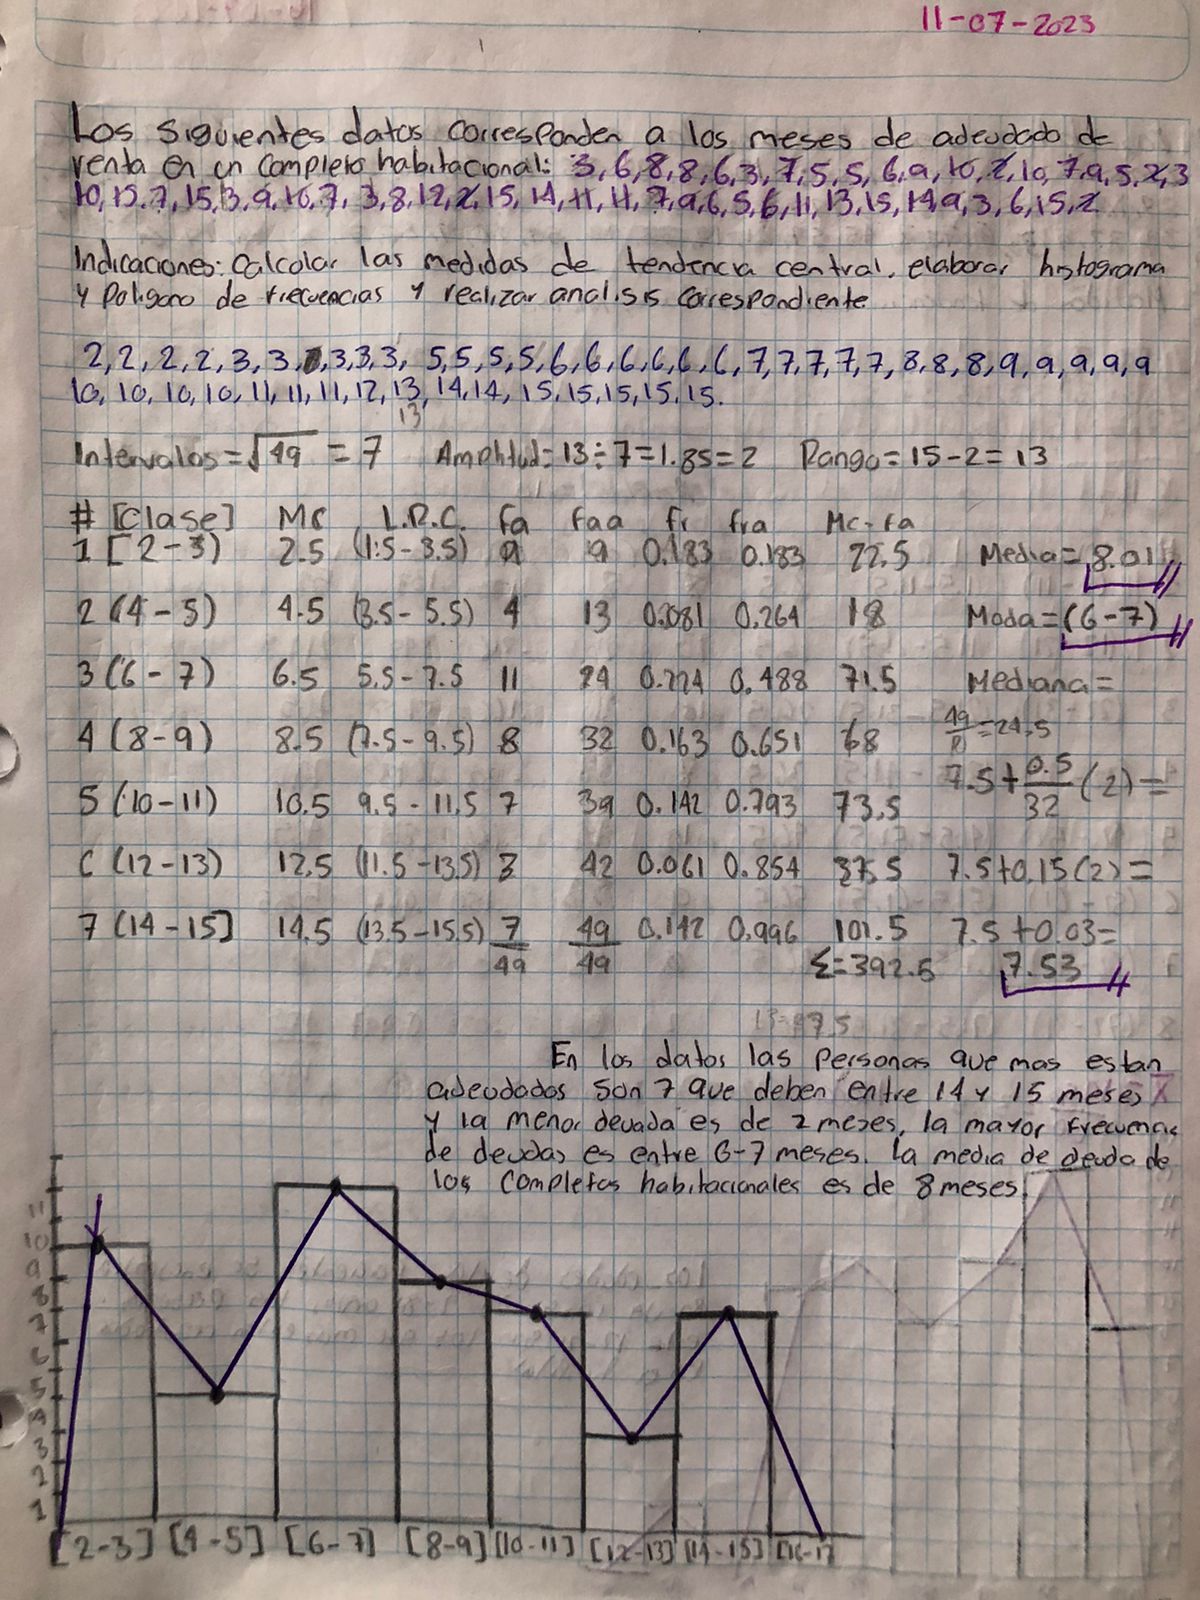 11-07-2023
Los siguientes datos corresponden a los meses de adeudado de
renta en un completo habitacional: 3,6,8,8,6,3,7,5,5,6,9,10,2,10,7,9,5,2,3
10,15,7,15,3,9,10,7,3,8,12,2,15,14,11,11,7,9,6,5,6,11,13,15,14,9,3,6,15,2
Indicaciones: Calcular las medidas de tendencia central, elaborar histograma
y poligono de frecuencias y realizar analisis correspondiente
2,2,2,2,3,3,3,3,3, 5,5,5,5,6,6,6,6,6,6,7,7,7,7,7,8,8,8,9,9,9,9,9
10,10,10,10,11,11,11,12,13,14,14,15,15,15,15,15.
13
Intervalos=√49 = 7 Amplitud=13÷7=1.85=2 Rango=15-2=13
# [Clase] MC L.R.C. fa faa fr fra Mc·fa
1 [2-3) 2.5 (1.5-3.5) 9 9 0.183 0.183 22.5 Media=8.01
2 (4-5) 4.5 (3.5-5.5) 4 13 0.081 0.264 18 Moda=(6-7)
3 (6-7) 6.5 5.5-7.5 11 24 0.224 0.488 71.5 Mediana=
4 (8-9) 8.5 (7.5-9.5) 8 32 0.163 0.651 68 49/2=24.5
5 (10-11) 10.5 9.5-11.5 7 39 0.142 0.793 73.5 7.5+0.5/32(2)=
6 (12-13) 12.5 (11.5-13.5) 3 42 0.061 0.854 37.5 7.5+0.15(2)=
7 (14-15] 14.5 (13.5-15.5) 7 49 0.142 0.996 101.5 7.5+0.03=
49 49 Σ=392.5 7.53
En los datos las personas que mas estan
adeudados son 7 que deben entre 14 y 15 meses
y la menor deuada es de 2 meses, la mayor frecuencia
de deudas es entre 6-7 meses. la media de deuda de
los completos habitacionales es de 8 meses.
11
10
9
8
7
6
5
4
3
2
1
[2-3] [4-5] [6-7] [8-9] [10-11] [12-13] [14-15] [16-17